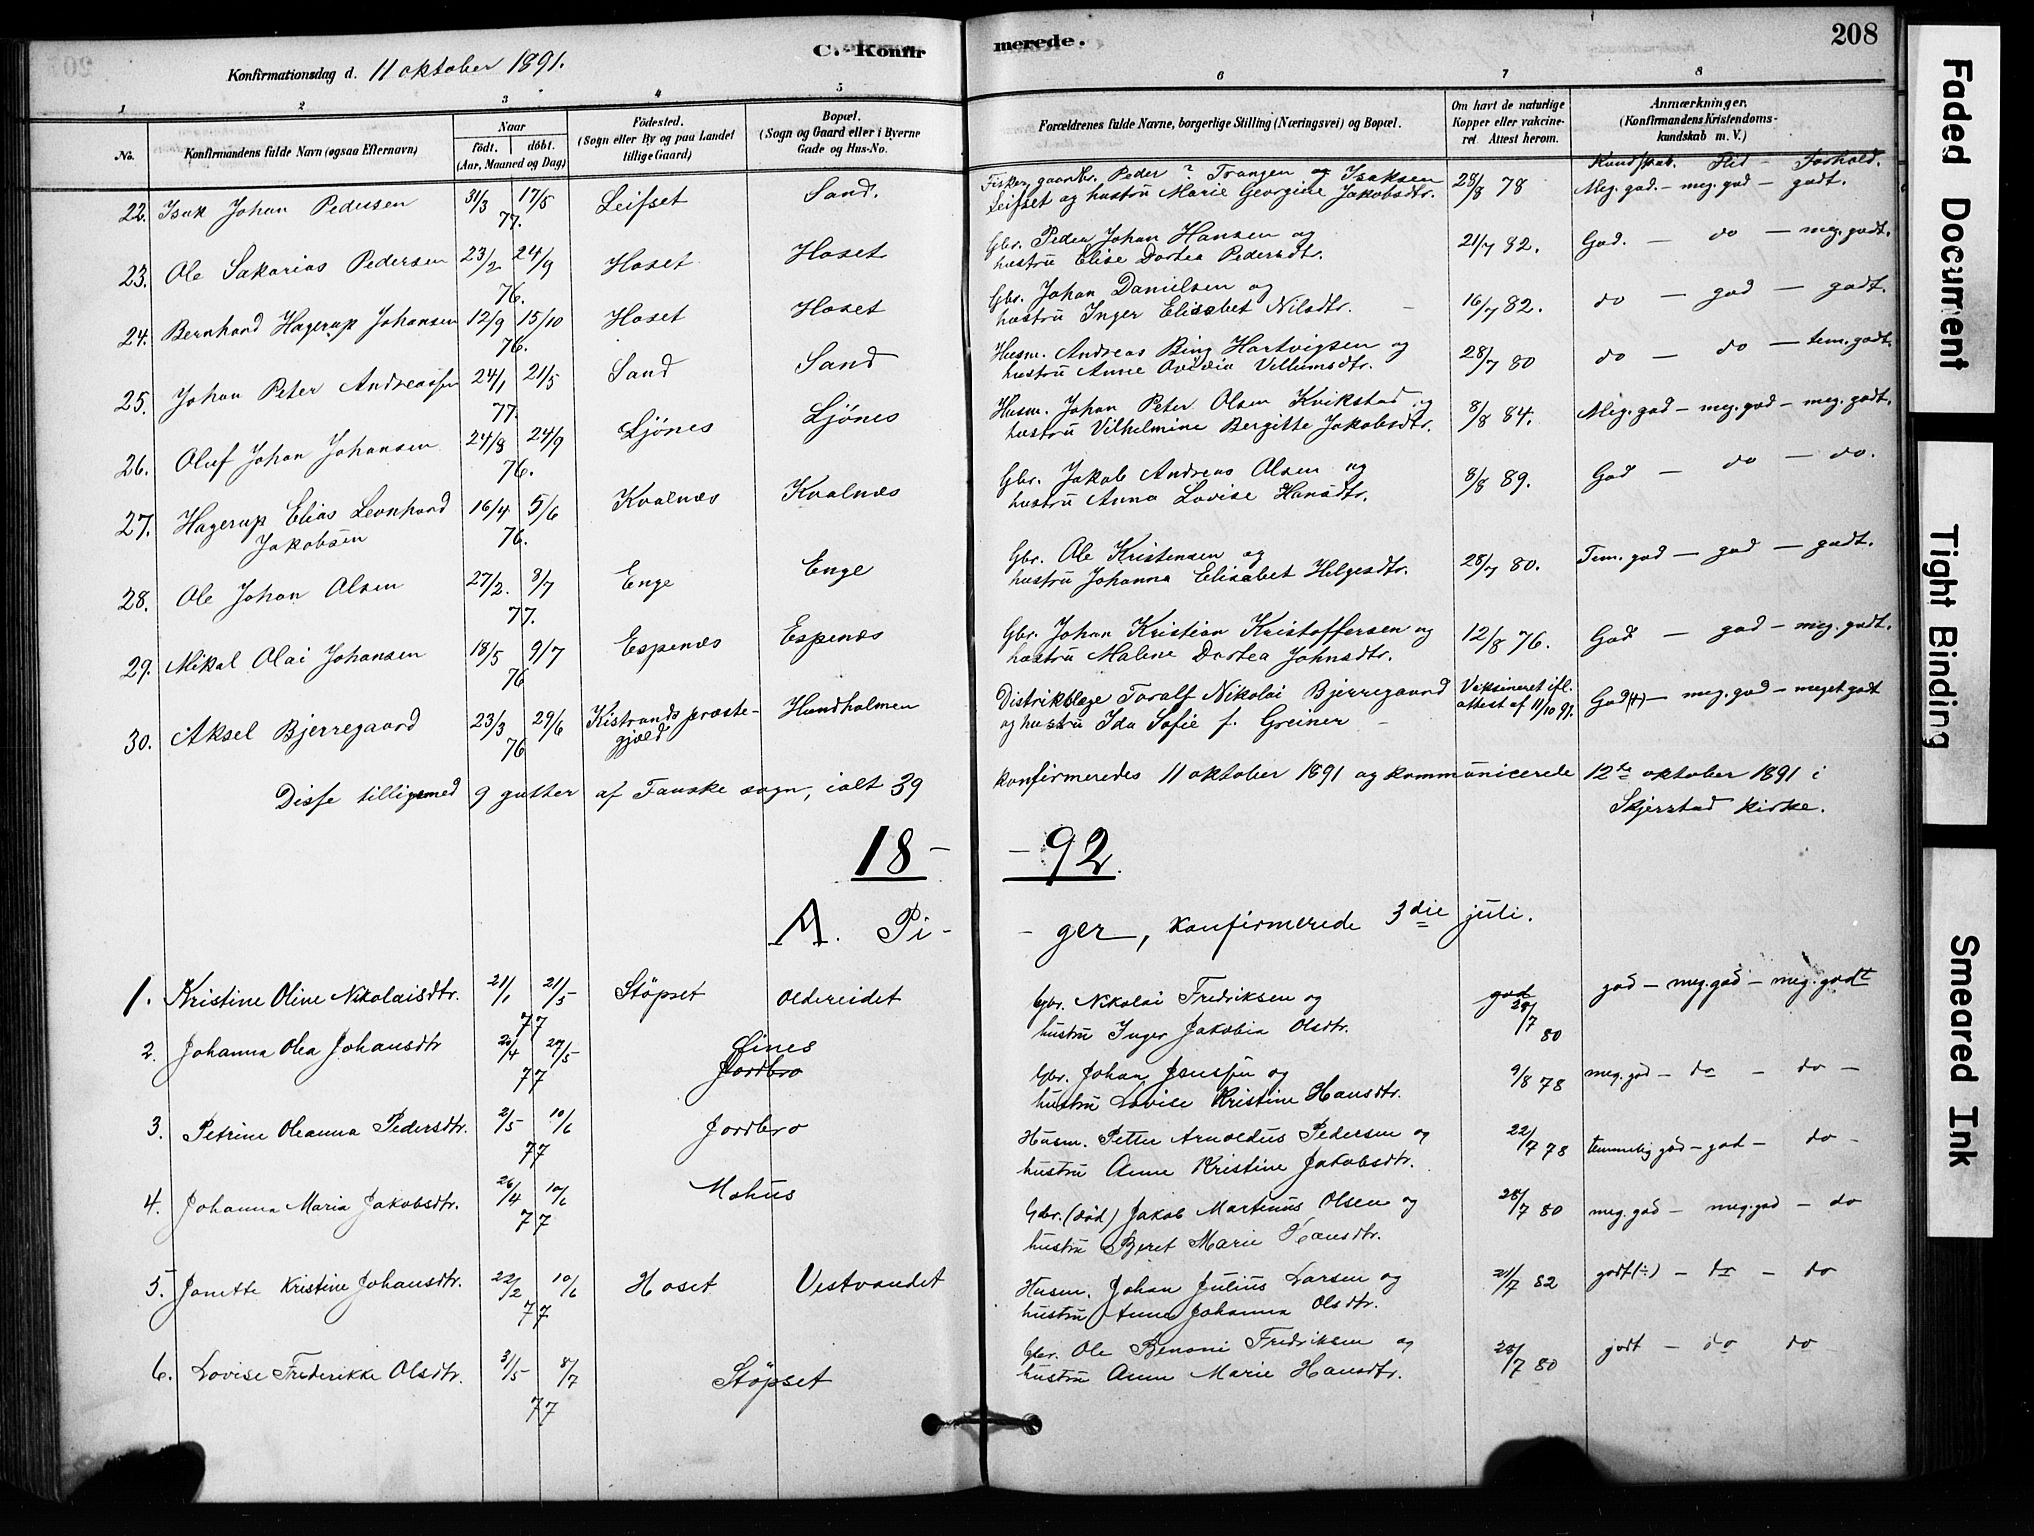 C. Konfirmerede.
208
Konfirmationsdag d. 11 oktober 1891.
1 2 3 4 5 6 7 8
No.
Konfirmandens fulde Navn (ogsaa Efternavn)
Naar
födt. döbt.
(Aar, Maaned og Dag)
Födested.
(Sogn eller By og paa Landet
tillige Gaard)
Bopæl.
(Sogn og Gaard eller i Byerne
Gade og Hus-No.
Forældrenes fulde Navne, borgerlige Stilling (Næringsvei) og Bopæl.
Om havt de naturlige
Kopper eller vakcine-
ret Attest herom.
Anmærkninger.
(Konfirmandens Kristendoms-
kundskab m. V.)
Kundskab. Flid - Forhold.
22. Isak Johan Pedersen 31/3 17/5 77. Leifset Sand.
Fisker, gaardbr. Peder ? Trangen og Isaksen
Leifset og hustru Marie Georgine Jakobsdtr. 28/8 78 Meg. god. - meg. god - godt.
23. Ole Sakarias Pedersen 23/2 24/9 76. Hoset Hoset
Gbr. Peder Johan Hansen og
hustru Elise Dortea Pedersdtr. 21/7 82. God. - do - meg. godt.
24. Bernhard Hagerup Johansen 12/9 15/10 76. Hoset Hoset
Gbr. Johan Danielsen og
hustru Inger Elisabet Nilsdtr. - 16/7 82. do - god - godt.
25. Johan Peter Andreassen 24/1 21/5 77. Sand Sand
Husm. Andreas Bing Hartvigsen og
hustru Anne Villumsdtr. 28/7 80 do - do - tem. godt.
26. Oluf Johan Johansen 24/8 24/9 76. Ljönes Ljönes
Husm. Johan Peter Olsen Kvikstad og
hustru Vilhelmine Bergitte Jakobsdtr. 8/8 84. Meg. god - meg. god - meg. godt.
27. Hagerup Elias Leonhard
Jakobsen 16/4 5/6 76. Kvalnæs Kvalnæs
Gbr. Jakob Andreas Olsen og
hustru Anna Lovise Hansdtr. 8/8 89. God - do - do.
28. Ole Johan Olsen 27/2. 8/7 77. Enge Enge
Gbr. Ole Kristensen og
hustru Johanna Elisabet Helgesdtr. 28/7 80. Tem. god - god - godt.
29. Mikal Olai Johansen 18/5 9/7 76 Espenæs Espenæs
Gbr. Johan Kristian Kristoffersen og
hustru Malene Dortea Johnsdtr. 12/8 76. God - god - meg. godt.
30. Aksel Bjerregaard 23/3 29/6 76 Kistrands præste-
gjæld Hundholmen
Distriktslæge Toralf Nikolai Bjerregaard
og hustru Ida Sofie f. Greiner - Vaksineret ifl.
attest af 11/10 91. God(+) - meg. god - meget godt
Disse tilligemed 9 gutter af Fauske sogn, ialt 39 konfirmeredes 11 oktober 1891 og kommunicerede 12te oktober 1891 i
Skjerstad kirke.
18 - - 92.
A. Pi- - ger, konfirmerede 3die juli.
1. Kristine Oline Nikolaisdtr. 21/1 21/5 77 Stöpset Oldereidet
Gbr. Nikolai Fredriksen og
hustru Inger Jakobia Olsdtr. god 28/7 80 god - meg. god - meg. godt
2. Johanna Olea Johansdtr 20/4 27/5 77 Lines
Jordbro
Gbr. Johan Jenssen og
hustru Lovise Kristine Hansdtr. 9/8 78 meg. god - do - do -
3. Petrine Oleanna Pedersdtr. 2/5 10/6 77 Jordbro
Husm. Petter Arnoldus Pedersen og
hustru Anne Kristine Jakobsdtr. 22/7 78 temmelig god - god - do -
4. Johanna Maria Jakobsdtr. 26/4 10/6 77 Mohus
Gbr. (död) Jakob Martinus Olsen og
hustru Beret Marie Hansdtr. 28/7 80 meg. god - meg. god - do
5. Jonette Kristine Johansdtr. 22/2 10/6 77 Hoset Vestvandet
Husm. Johan Julius Larsen og
hustru Anne Johanna Olsdtr. 21/7 82 godt(÷) - do - do
6. Lovise Frederikke Olsdtr. 3/5 8/7 77 Stöpset
Gbr. Ole Benoni Fredriksen og
hustru Anne Marie Hansdtr. 28/7 80 godt - do do
Faded Document
Tight Binding
Smeared Ink